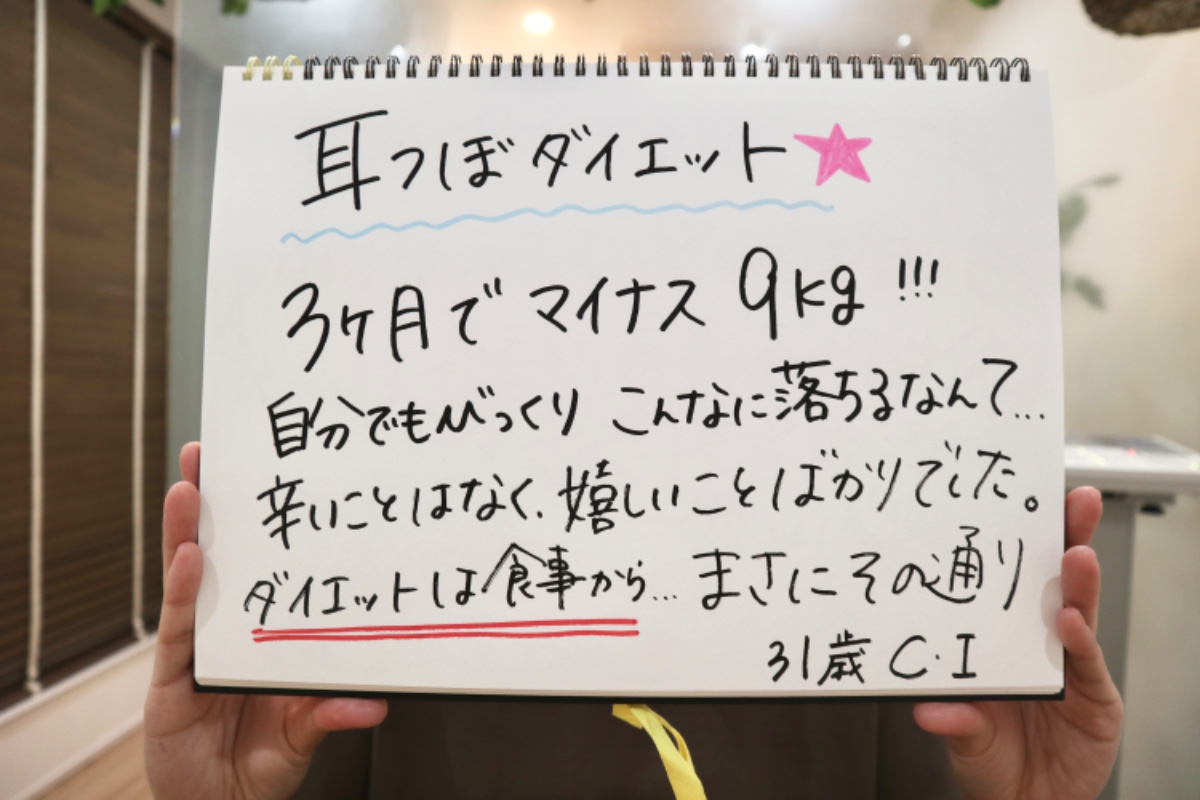 耳つぼダイエット★
3ヶ月でマイナス 9kg !!!
自分でもびっくり こんなに落ちるなんて...
辛いことはなく、嬉しいことばかりでした。
ダイエットは食事から... まさにその通り
31歳 C・I